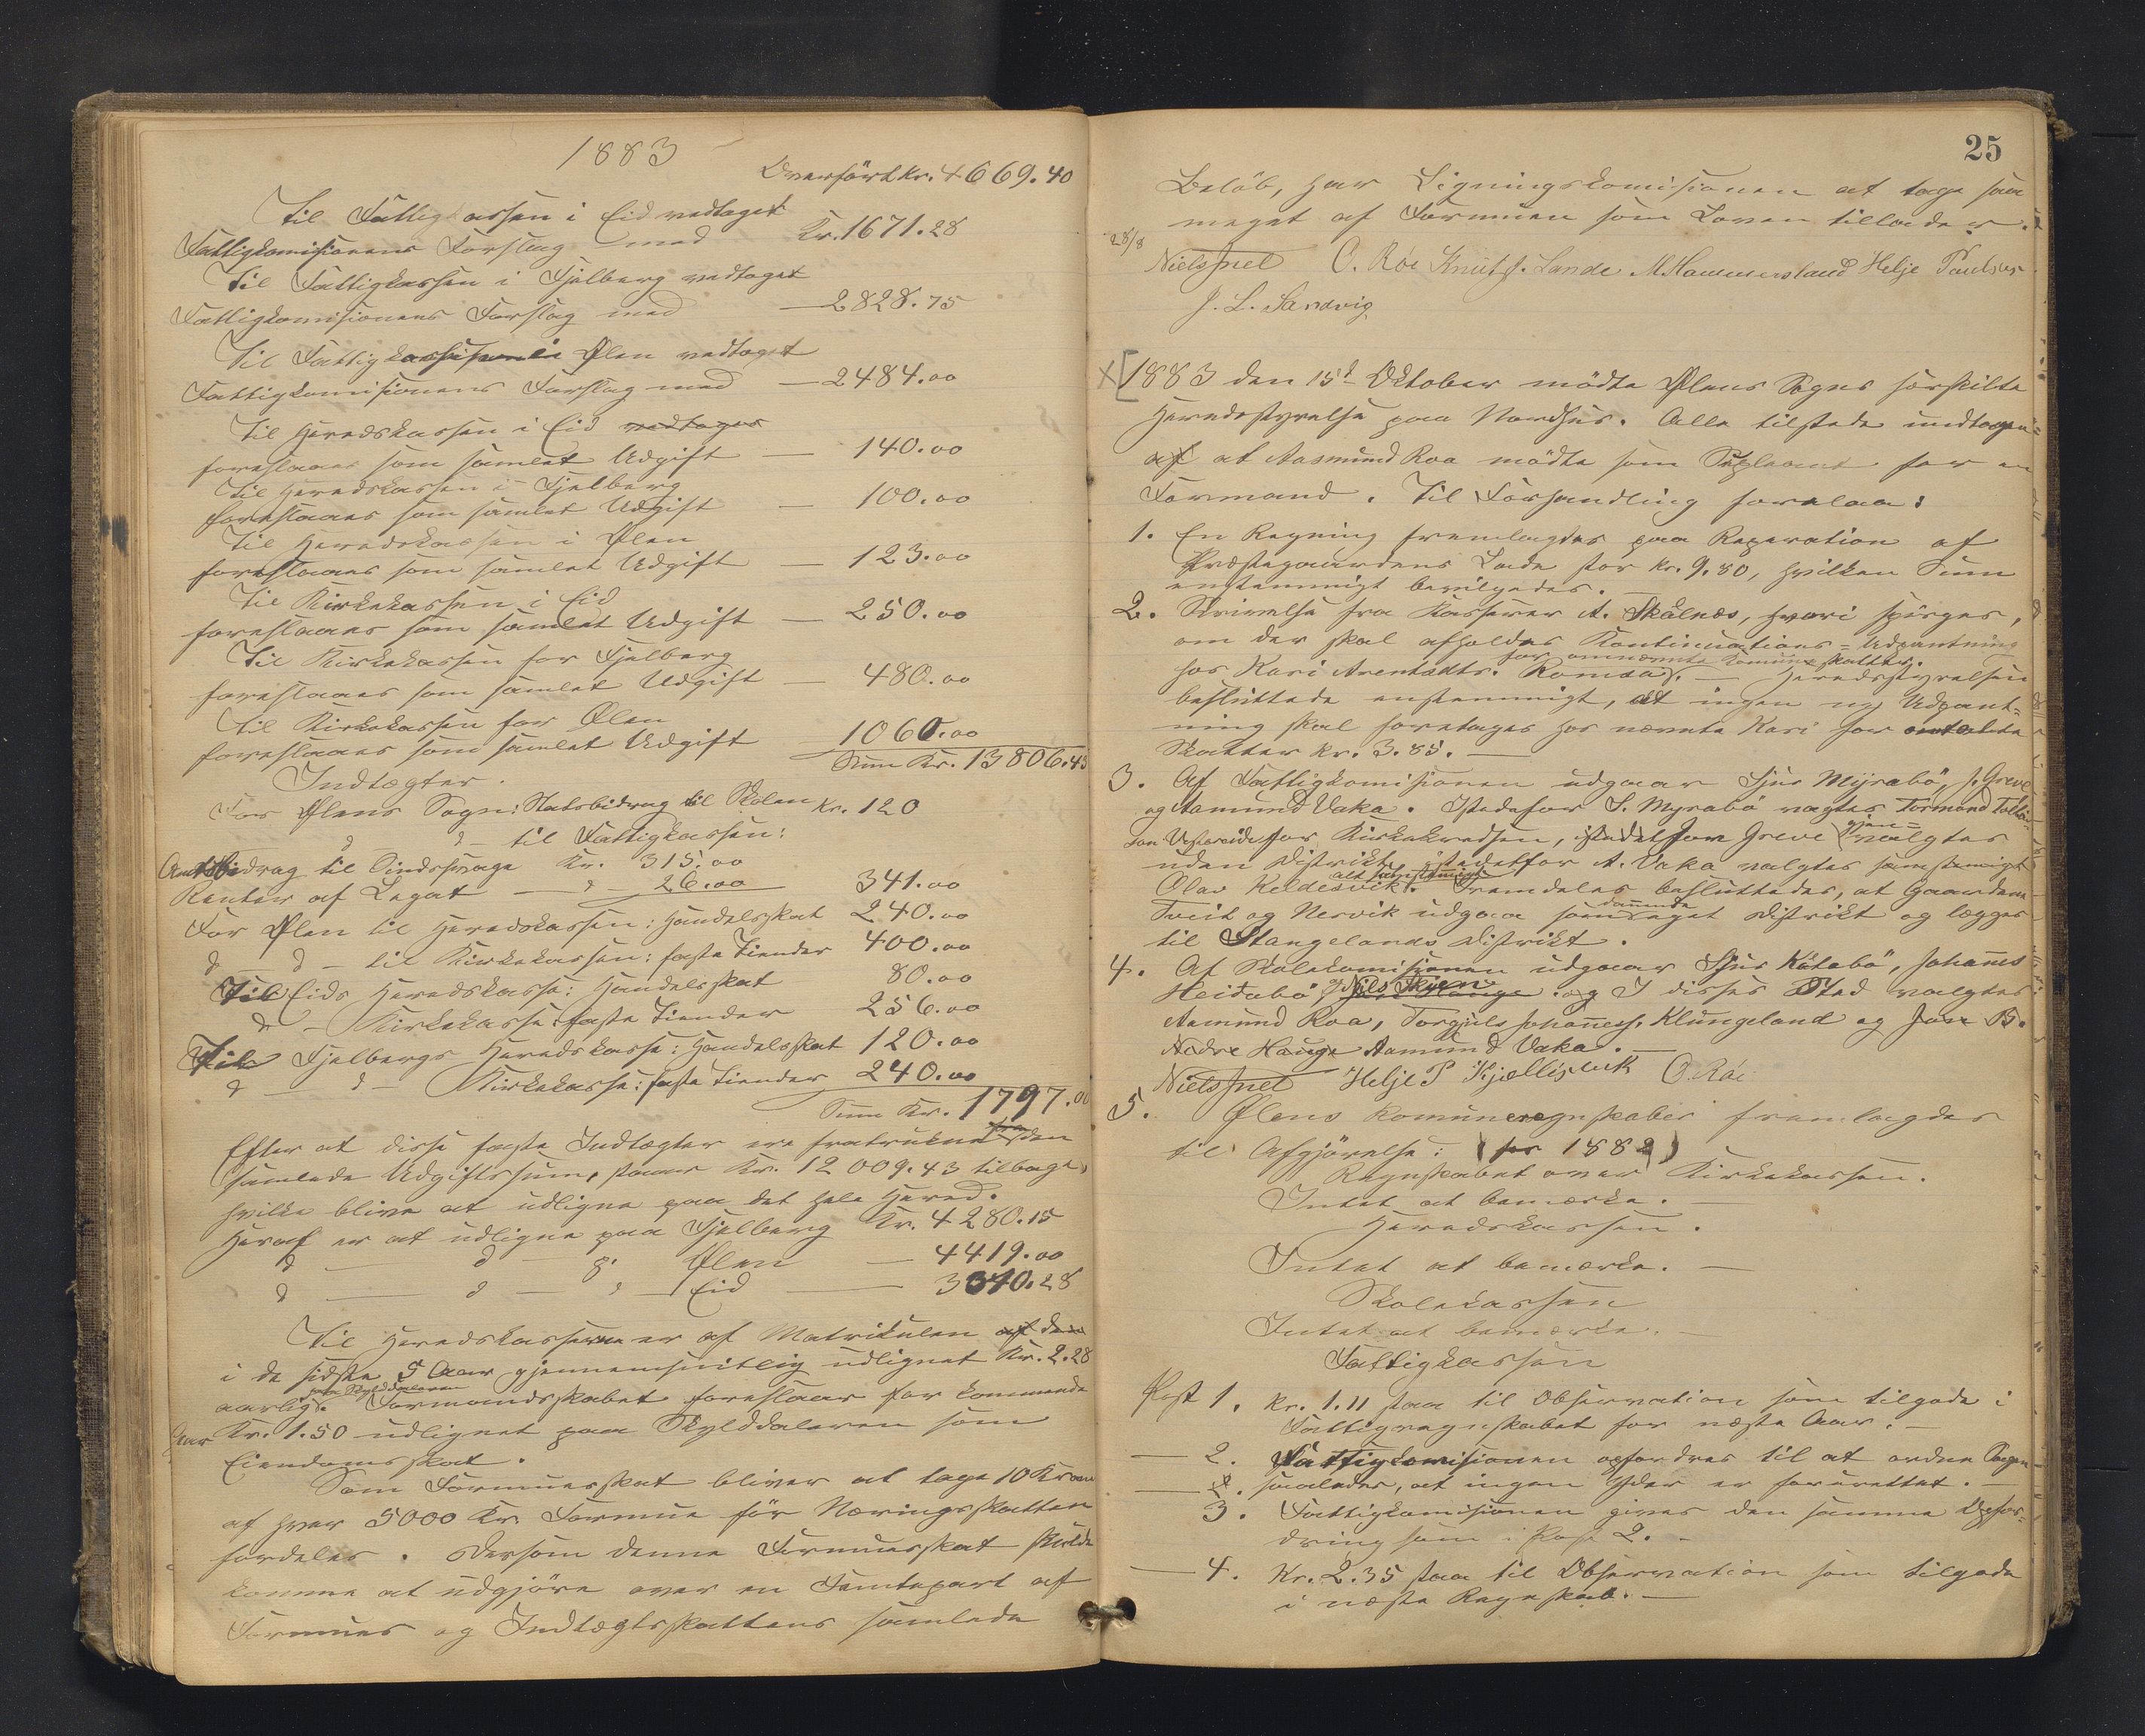 1883
Overført kr. 4669.40
Til Fattigkassen i Eid vedtaget
Fattigkomisionens Forslag med Kr. 1671.28
Til Fattigkassen i Fjelberg vedtaget
Fattigkomisionens Forslag med — 2828.75
Til Fattigkassen i Ølen vedtaget
Fattigkomisionens Forslag med — 2484.00
Til Heredskassen i Eid vedtages
foreslaaes som samlet Udgift — 140.00
Til Heredskassen i Fjelberg
foreslaaes som samlet Udgift — 100.00
Til Heredskassen i Ølen
foreslaaes som samlet Udgift — 123.00
Til Kirkekassen i Eid
foreslaaes som samlet Udgift — 250.00
Til Kirkekassen for Fjelberg
foreslaaes som samlet Udgift — 480.00
Til Kirkekassen for Ølen
foreslaaes som samlet Udgift 1060.00
Sum Kr. 13806.43
Indtægter.
For Ølens Sogn: Statsbidrag til Skolen Kr. 120
d — d — til Fattigkassen:
Amtsbidrag til Sindssvage Kr. 315.00
Renter af Legat — d — 26.00 341.00
For Ølen til Heredskassen: Handelsskat 240.00
d — d — til Kirkekassen: faste Tiender 400.00
Til Eids Heredskasse: Handelsskat 80.00
d — Kirkekasse: faste Tiender 256.00
Til Fjelbergs Heredskasse: Handelsskat 120.00
d — d — Kirkekasse: faste Tiender 240.00
Sum Kr. 1797.00
Efter at disse faste Indtægter ere fratrukne fra den
samlede Udgiftssum, staar Kr. 12009.43 tilbage,
hvilke blive at udligne paa det hele Hered.
Heraf er at udligne paa Fjelberg Kr. 4280.15
d — d — d. Ølen — 4419.00
d — d — d — Eid — 3310.28
Til Heredskasserne er af Matrikulen af den
i de sidste 5 Aar gjennemsnitlig udlignet Kr. 2.28
paa Skylddaleren
aarlig. Formandskabet foreslaar for kommende
Aar Kr. 1.50 udlignet paa Skylddaleren som
Eiendomsskat.
Som Formuesskat bliver at tage 10 Kroner
af hver 5000 Kr. Formue før Næringsskatten
fordeles. Dersom denne Formuesskat skulde
komme at udgjøre over en Femtepart af
Formues og Indtægtsskattens samlede
25
Beløb, har Ligningskomisionen at tage saa
meget af Formuen som Loven tillader.
28/8
Niels Juel O. Röe Knut J. Lande M. Hammersland Helje Paulsen
J. L. Sandvig
1883 den 15d Oktober mödte Ølens Sogns særskilte
Heredsstyrelse paa Nordhus. Alle tilstede undtagen=
af at Aasmund Roa mödte som Supleant for en
Formand. Til Forhandling forelaa:
1. En Regning fremlagdes paa Reparation af
Præstegaardens Lade stor kr. 9.80, hvilken Sum
enstemmigt bevilgedes.
2. Skrivelse fra Kasserer A. Skålnes, hvori spörges,
om der skal afholdes Kontinuations=Udpantning
for omnævnte Komuneskatter.
hos Kari Arentsdtr. Romsa. — Heredsstyrelsen
besluttede enstemmigt, at ingen ny Udpant=
ning skal foretages hos nævnte Kari for omtalte
Skatter kr. 3.85. —
3. Af Fattigkomisionen udgaar Sjur Myrabö, J. Greve
og Aamund Vaka. Istedefor S. Myrabö valgtes Tormond
for Kirkekredsen, istedetfor Greve gjen=valgtes
uden Distrikt, istedetfor A. Vaka valgtes
alt
Olav Keldesvik. Fremdeles besluttedes, at Gaardene
Tveit og Nervik udgaa som eget Distrikt og lægges
til Stangelands Distrikt.
4. Af Skolekomisionen udgaar Sjur Kåtabö, Johanes
Heidabö og Nils Skjen. og I disses Sted valgtes
Aamund Roa, Torgjuls Johaness. Klungeland og Jon B.
Nedre Hauge Aamund Vaka. —
Niels Juel Helje P Kjellesvik O. Röe
5. Ølens Komuneregnskaber fremlagdes
til Afgjørelse: (for 1882)
Regnskabet over Kirkekassen.
Intet at bemærke.
Heredskassen.
Intet at bemærke. —
Skolekassen
Intet at bemærke. —
Fattigkassen
Post 1. Kr. 1.11 staa til Observation som tilgode i
Fattigregnskabet for næste Aar. —
— 2. Fattigkomisionen opfordres til at ordne Sagen
saaledes, at ingen Yder er forurettet. —
3. Fattigkomisionen gives den samme Opfor=
dring som i Post 2. —
— 4. Kr. 2.35 staa til Observation som tilgode
i næste Regnskab. —